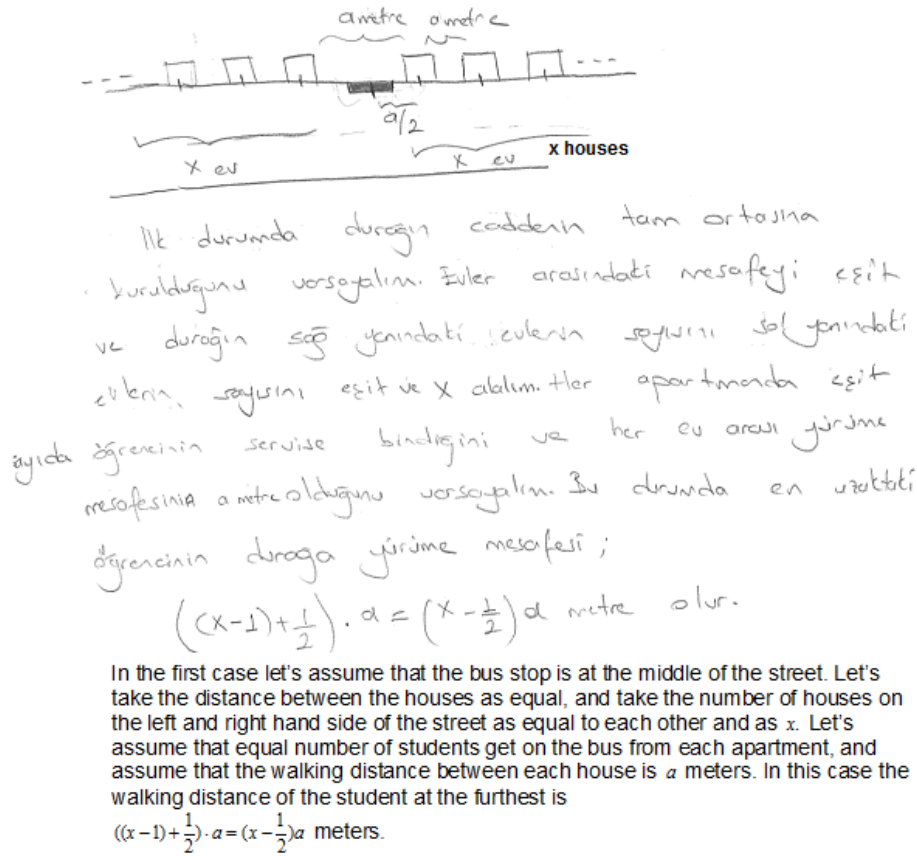 ametre ametre
a/2
x ev x ev x houses
İlk durumda durağın caddenin tam ortasına
kurulduğunu varsayalım. Evler arasındaki mesafeyi eşit
ve durağın sağ yanındaki evlerin sayısını sol yanındaki
evlerin sayısını eşit ve X alalım. Her apartmanda eşit
sayıda öğrencinin servise bindiğini ve her ev arası yürüme
mesafesinin a metre olduğunu varsayalım. Bu durumda en uzaktaki
öğrencinin durağa yürüme mesafesi;
((x-1)+1/2) . a = (x - 1/2) a metre olur.
In the first case let's assume that the bus stop is at the middle of the street. Let's
take the distance between the houses as equal, and take the number of houses on
the left and right hand side of the street as equal to each other and as x. Let's
assume that equal number of students get on the bus from each apartment, and
assume that the walking distance between each house is a meters. In this case the
walking distance of the student at the furthest is
((x-1)+1/2)·a=(x-1/2)a meters.